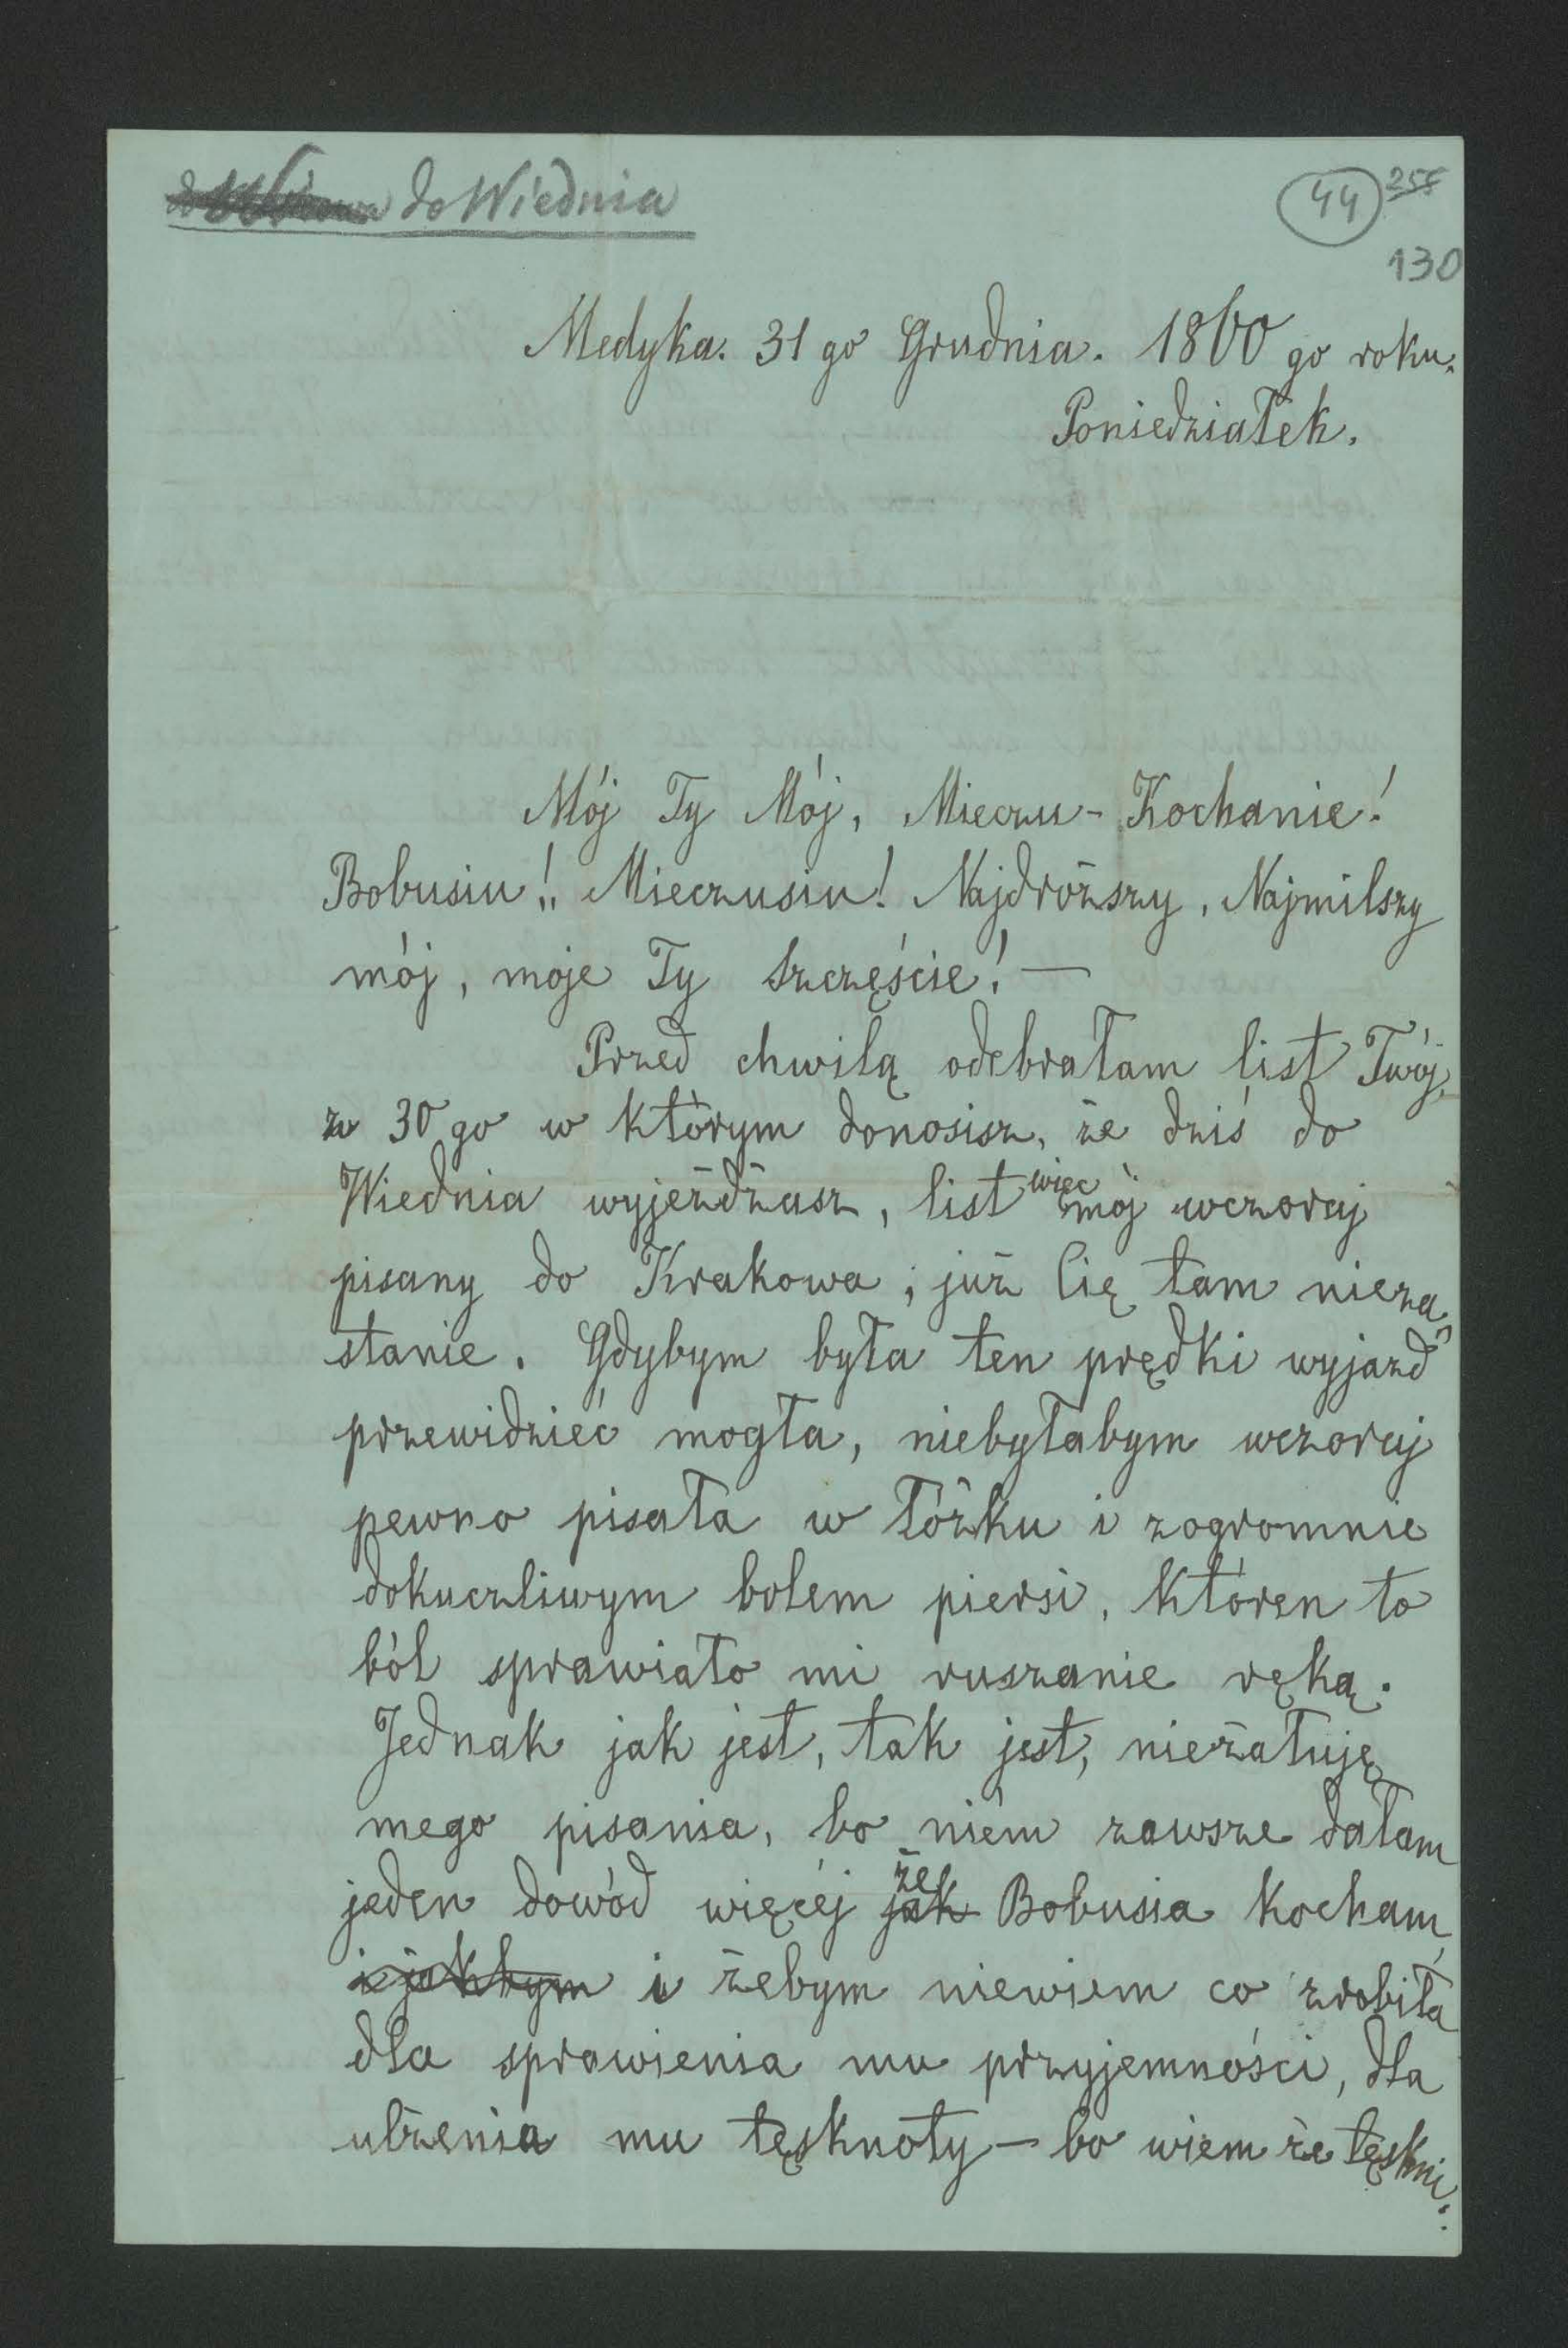 do Wiednia
44 255
130
Medyka. 31 go Grudnia. 1860 go roku.
Poniedziałek.
Mój Ty Mój, Mieczu - Kochanie!
Bobusiu!! Mieczusiu! Najdroższy, Najmilszy
mój, moje Ty Szczęście! —
Przed chwilą odebrałam list Twój,
z 30 go w którym donosisz, że dziś do
Wiednia wyjeżdżasz, list więc mój wczoraj
pisany do Krakowa, już Cię tam nieza-
stanie. Gdybym była ten prędki wyjazd
przewidzieć mogła, niebyłabym wczoraj
pewno pisała w łóżku i zogromnie
dokuczliwym bolem piersi, któren to
ból sprawiało mi ruszanie ręką.
Jednak jak jest, tak jest, nieżałuję
mego pisania, bo niém zawsze dałam
jeden dowód więcéj jak że Bobusia kocham
i jakbym i żebym niewiem co zrobiła
dla sprawienia mu przyjemności, dla
ulżenia mu tęsknoty — bo wiem że tęskni.